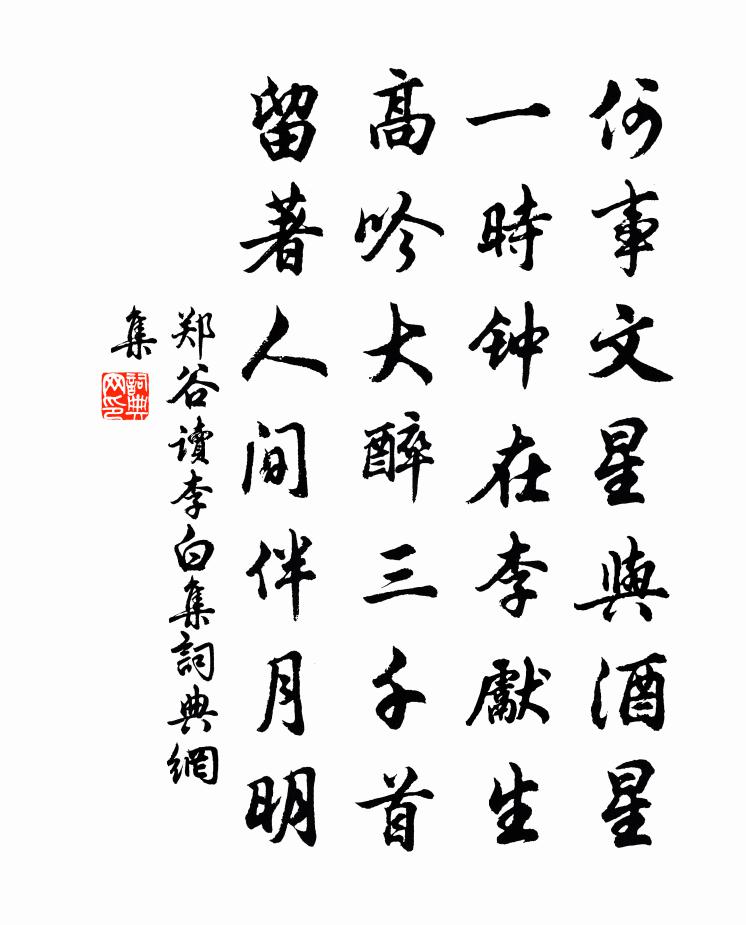 何事文星與酒星
一時钟在李獻生
高吟大醉三千首
留著人间伴月明
郑谷讀李白集詞典網
集
詞典网印